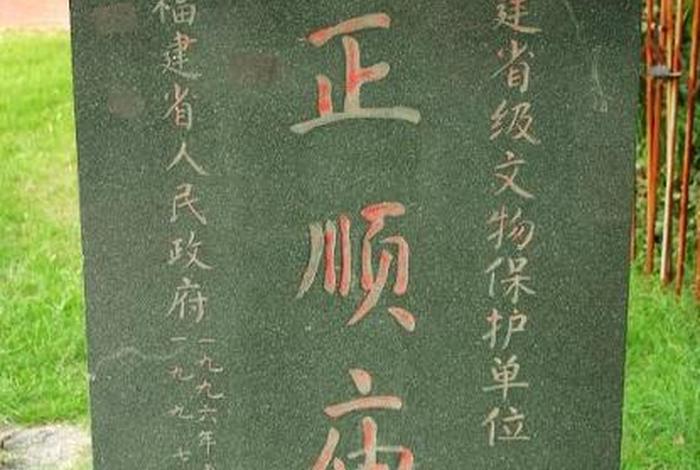 建省级文物保护单位
正顺庙
福建省人民政府
一九九六年
一九九七